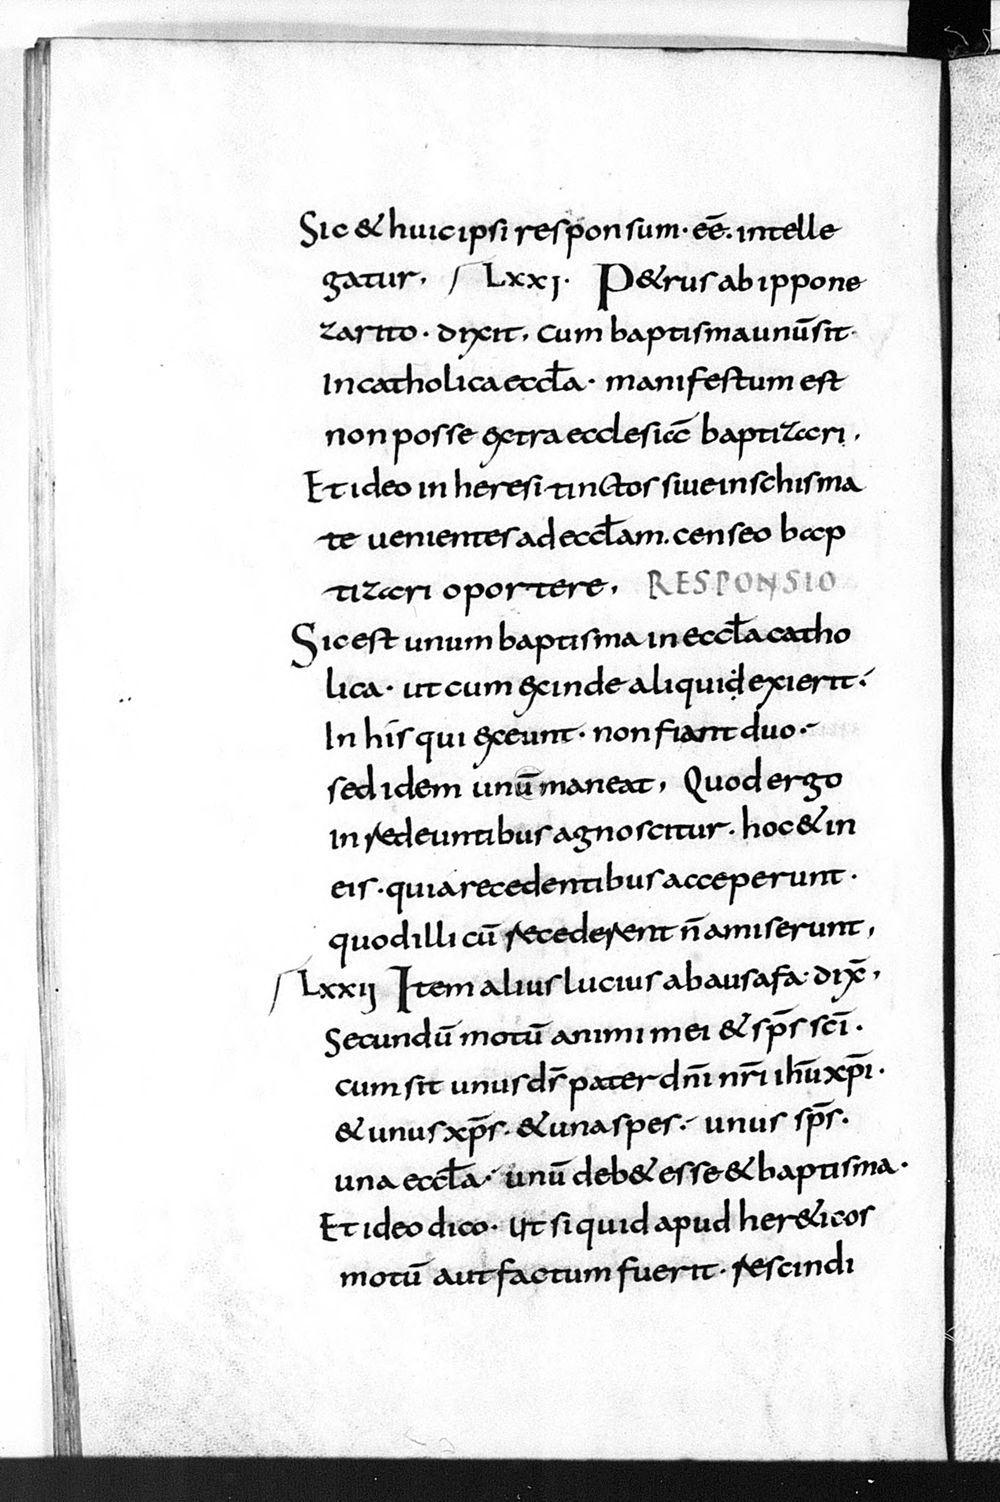 Sic & huic ipsi responsum· eē. intelle
gatur, Lxxı· P&rus ab ippone
zarito· dixit, cum baptisma unūsit·
In catholica eccƚa· manifestum est
non posse extra ecclesiae baptizari,
Et ideo in heresi tinctos siue in schisma
te uenientes ad eccƚam. censeo bap
tizari oportere, RESPONSIO
Sic est unum baptisma in eccƚa catho
lica· ut cum exinde aliquid exierit·
In hīs qui exeunt· non fiant duo·
sed idem unū maneat, Quod ergo
in redeuntibus agnoscitur· hoc & in
eis· quia recedentibus acceperunt·
quod illi cū recederent n̄ amiserunt,
Lxxıȷ Item alius lucius ab ausafa· dix̄,
Secundū motū animi mei & sp̄s sc̄i·
cum sit unus ds̄ pater dn̄i nr̄i ih̄u xp̄i·
& unus xp̄s· & una spes· unus sp̄s·
una eccƚa· unū deb& esse & baptisma·
Et ideo dico· Ut si quid apud her&icos
motū aut factum fuerit· rescindi